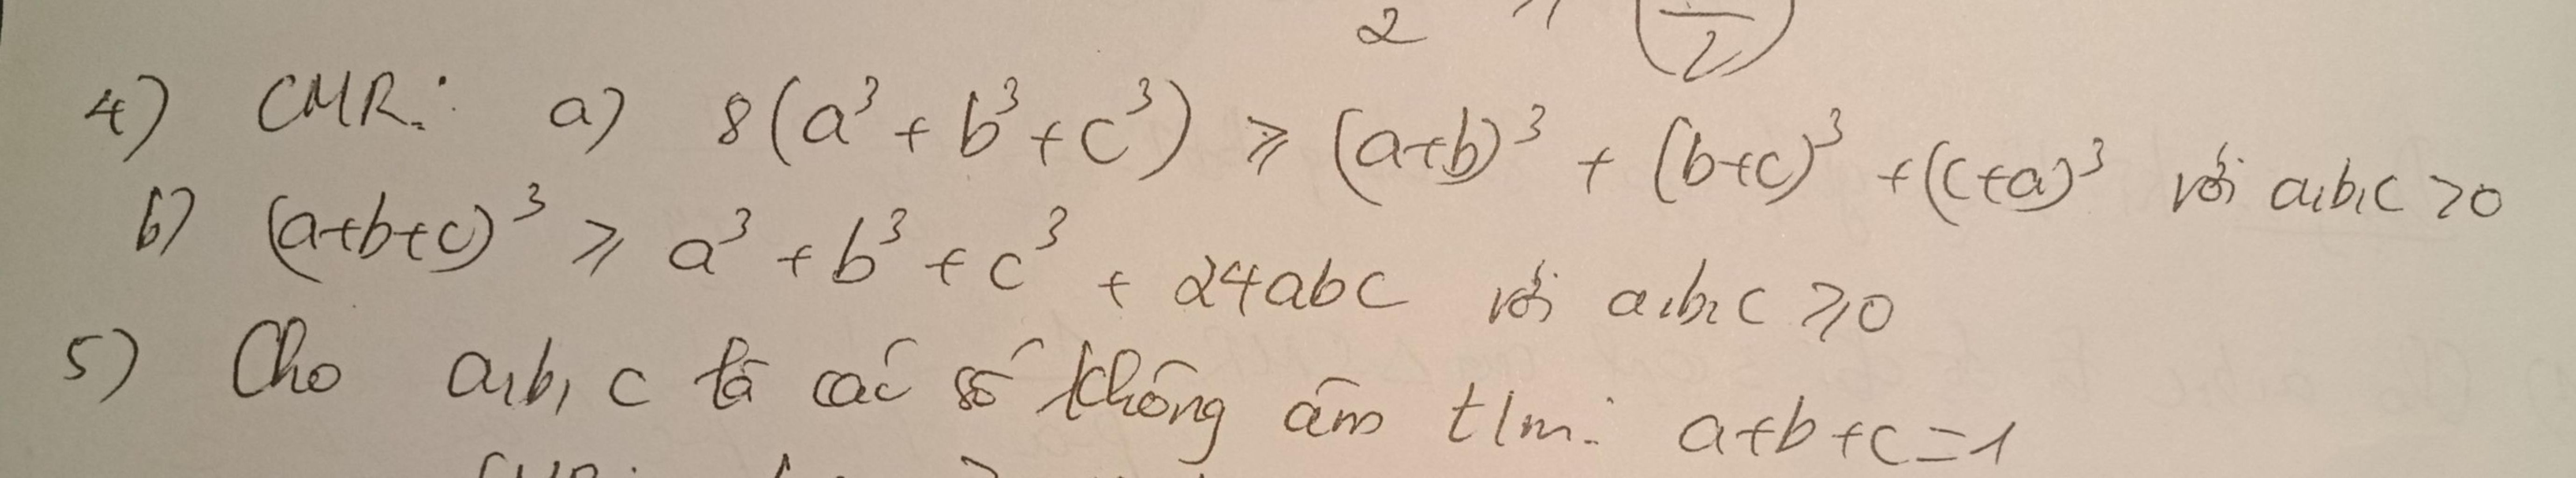 2 2
4) CMR: a) 8(a³ + b³ + c³) ⩾ (a+b)³ + (b+c)³ + (c+a)³ với a,b,c >0
b) (a+b+c)³ ⩾ a³ + b³ + c³ + 24abc với a,b,c ⩾0
5) Cho a,b,c là các số không âm t/m: a+b+c=1